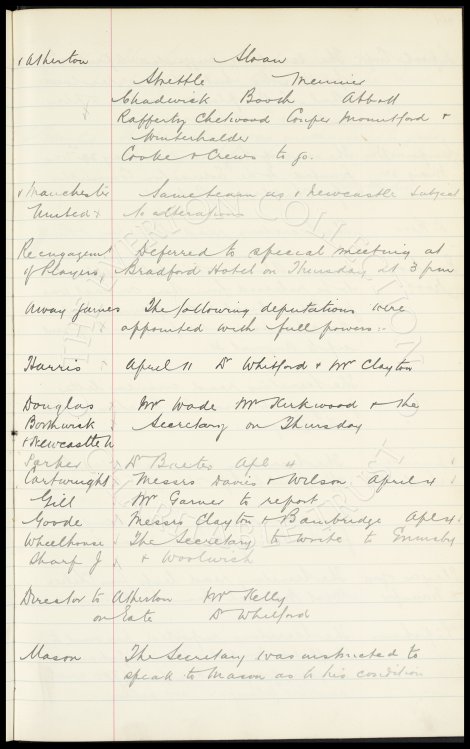 v Atherton Sloan
Strettle Meunier
Chadwick Booth Abbott
Rafferty Chetwood Couper Mountford &
Winterhalder
Cooke & Crews to go.
v Manchester Same team as v Newcastle subject
United to alterations
Reengagemt Deferred to special meeting at
of Players Bradford Hotel on Thursday at 3 pm
Away games The following deputations were
appointed with full powers:-
Harris April 11 Dr Whitford & Mr Clayton
Douglas Mr Wade Mr Kirkwood & the
Borthwick Secretary on Thursday
v Newcastle U
Parker Dr Baxter Apl 4
Cartwright Messrs Davies & Wilson April 4
Gill Mr Garner to report
Goode Messrs Clayton & Bainbridge Apl 4
Wheelhouse The Secretary to write to Grimsby
Sharp J & Woolwich
Director to Atherton Mr Kelly
on Gate Dr Whitford
Mason The Secretary was instructed to
speak to Mason as to his condition
THE EVERTON COLLECTION